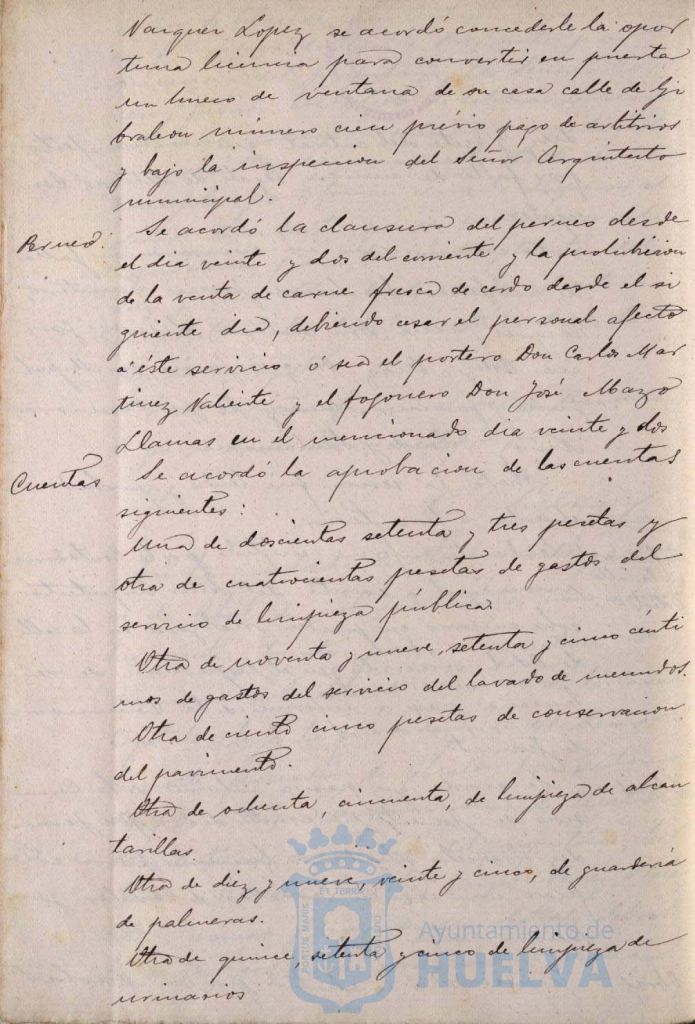 Vazquez Lopez se acordó concederle la opor
tuna licencia para convertir en puerta
un hueco de ventana de su casa calle de Gi
braleon número cien prévio pago de arbitrios
y bajo la inspeccion del Señor Arquitecto
municipal.
Perneo.
Se acordó la clausura del perneo desde
el dia veinte y dos del corriente y la prohibicion
de la venta de carne fresca de cerdo desde el si
guiente dia, debiendo cesar el personal afecto
á éste servicio ó sea el portero Don Carlos Mar
tinez Valiente y el fogonero Don José Mazo
Llamas en el mencionado dia veinte y dos
Cuentas
Se acordó la aprobacion de las cuentas
siguientes:
Una de doscientas setenta y tres pesetas y
otra de cuatrocientas pesetas de gastos del
servicio de limpieza pública.
Otra de noventa y nueve, setenta y cinco cénti
mos de gastos del servicio del lavado de menudos.
Otra de ciento cinco pesetas de conservacion
del pavimento.
Otra de ochenta, cincuenta, de limpieza de alcan
tarillas.
Otra de diez y nueve, veinte y cinco, de guarderia
de palmeras.
Otra de quince, setenta y cinco de limpieza de
urinarios
PORTUS MARIS ET TERRAE CUSTODIO
Ayuntamiento de
HUELVA